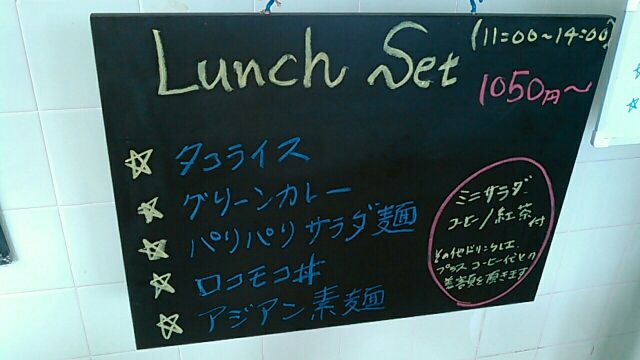 Lunch Set
(11:00~14:00)
1050円~
☆ タコライス
☆ グリーンカレー
☆ パリパリサラダ麺
☆ ロコモコ丼
☆ アジアン素麺
ミニサラダ
コーヒー/紅茶付
その他ドリンクは
プラスコーヒー代との
差額を頂きます